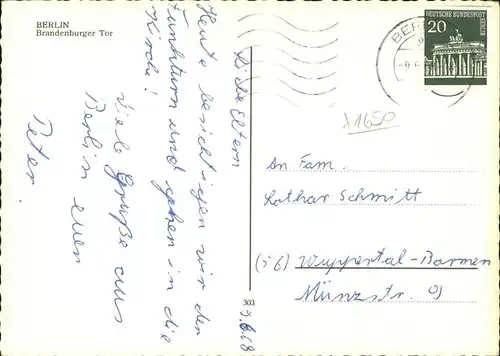 BERLIN
Brandenburger Tor
Liebe Eltern
Heute besichtigen wir den
Funkturm und gehen in die
Kirche!
Viele Grüße aus
Berlin euer
Peter.
9.6.68
303
DEUTSCHE BUNDESPOST
BERLIN
20
λ1650
An Fam.
Lothar Schmitt
(56) Wuppertal-Barmen
Münzstr. 9